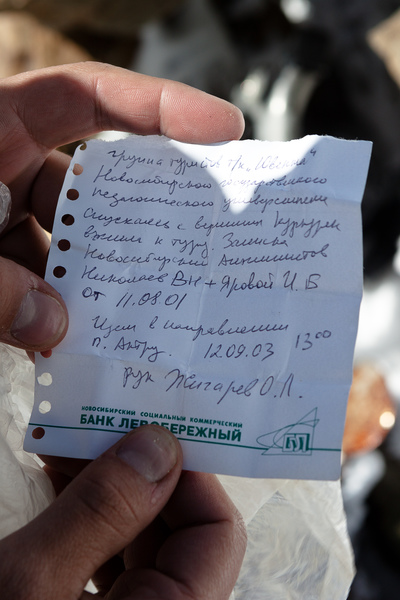 группа туристов т/к „Ювента"
Новосибирского государственного
педагогического университета
спускалась с вершины Куркуре
вниз к туру. Записка
Новосибирских Альпинистов
Николаев ВН + Яровой И. Б
от 11.08.01
Идём в направлении
п. Актру. 12.09.03 13⁰⁰
рук Жигарев О.Л.
НОВОСИБИРСКИЙ СОЦИАЛЬНЫЙ КОММЕРЧЕСКИЙ
БАНК ЛЕВОБЕРЕЖНЫЙ
БЛ